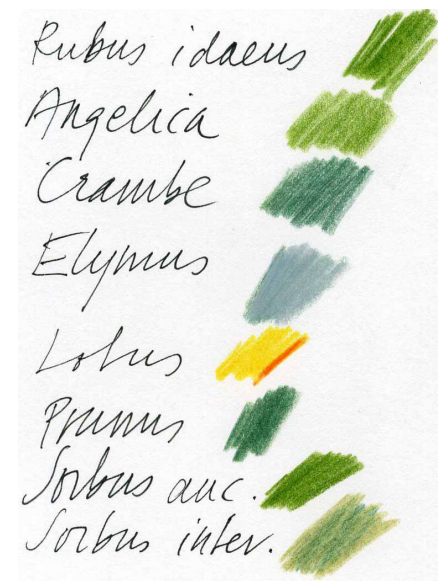 Rubus idaeus
Angelica
Crambe
Elymus
Lotus
Prunus
Sorbus auc.
Sorbus inter.